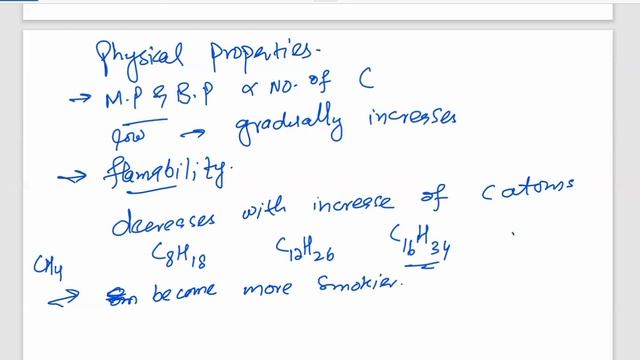 Physical Properties.
→ M.P & B.P ∝ No. of C
low → gradually increases
→ flamability.
decreases with increase of C atoms
CH4 C8H18 C12H26 C16H34
→ become more smokier.